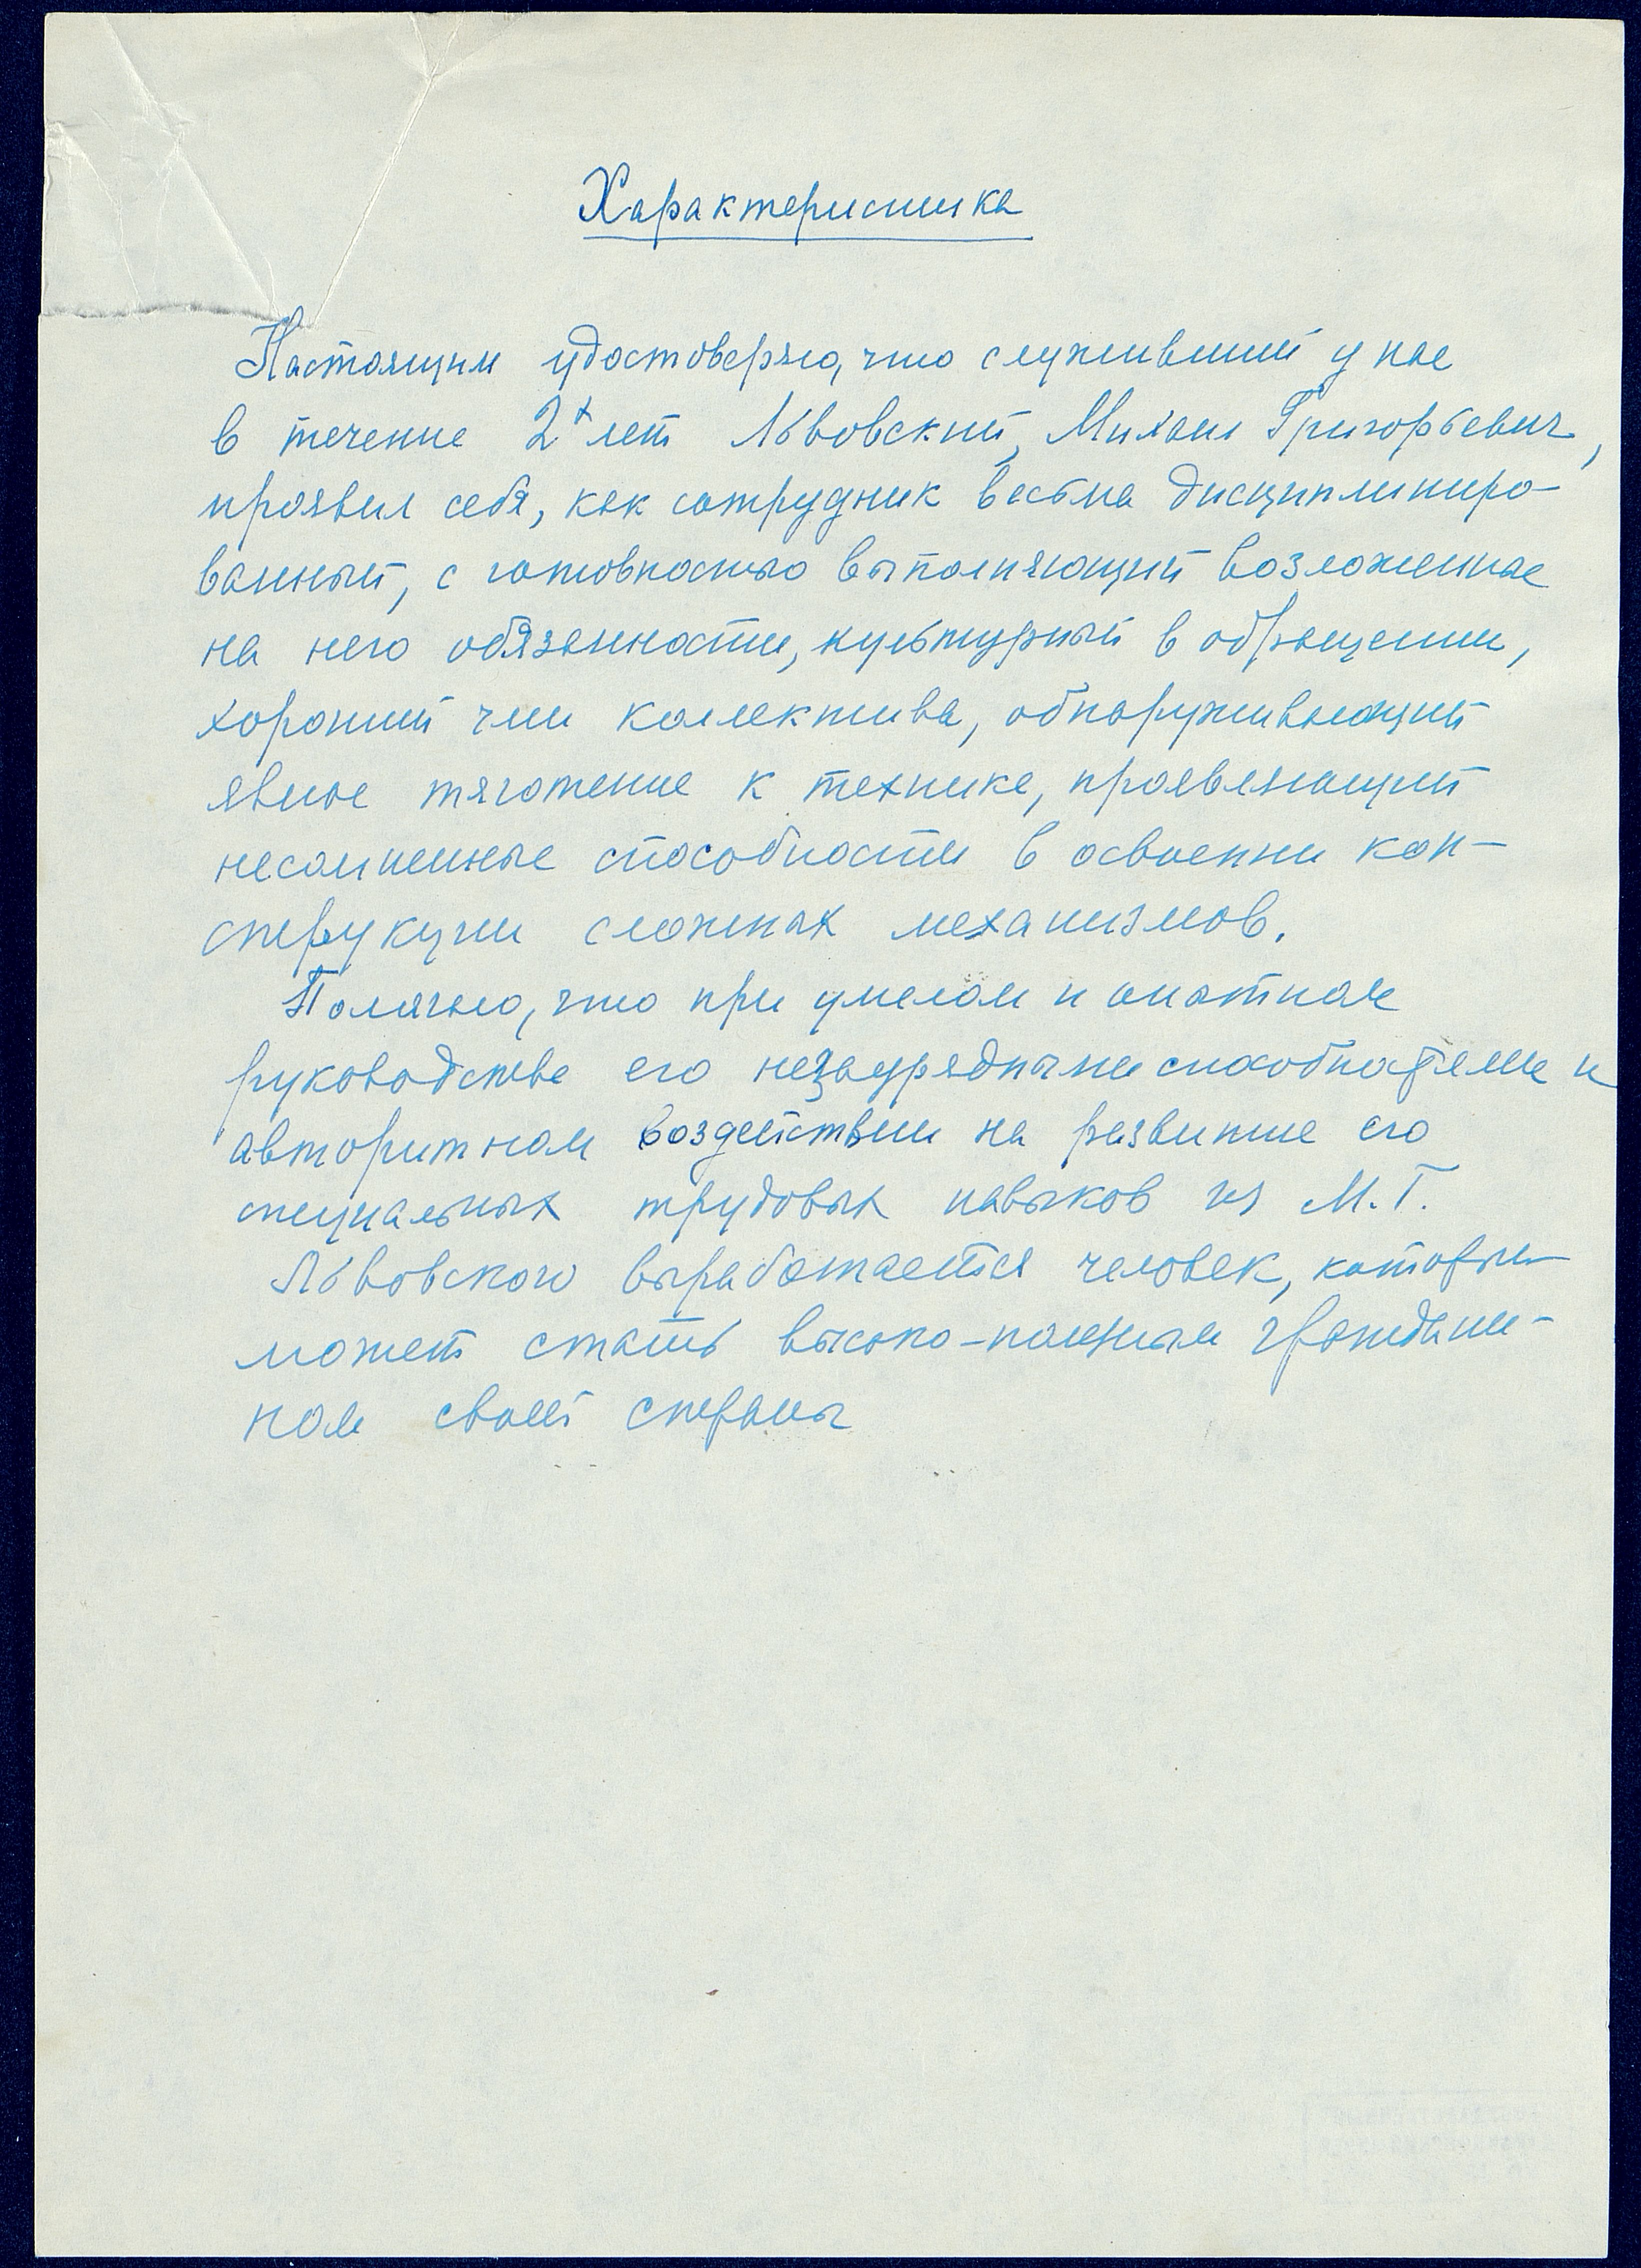 Характеристика
Настоящим удостоверяю, что служивший у нас
в течение 2х лет Львовский, Михаил Григорьевич,
проявил себя, как сотрудник весьма дисциплиниро-
ванный, с готовностью выполняющий возложенные
на него обязанности, культурный в обращении,
хороший член коллектива, обнаруживающий
явное тяготение к технике, проявляющий
несомненные способности в освоении кон-
струкции сложных механизмов.
Полагаю, что при умелом и опытном
руководстве его незаурядными способностями и
авторитном воздействии на развитие его
специальных трудовых навыков из М. Г.
Львовского выработается человек, который
может стать высоко-полезным граждани-
ном своей страны